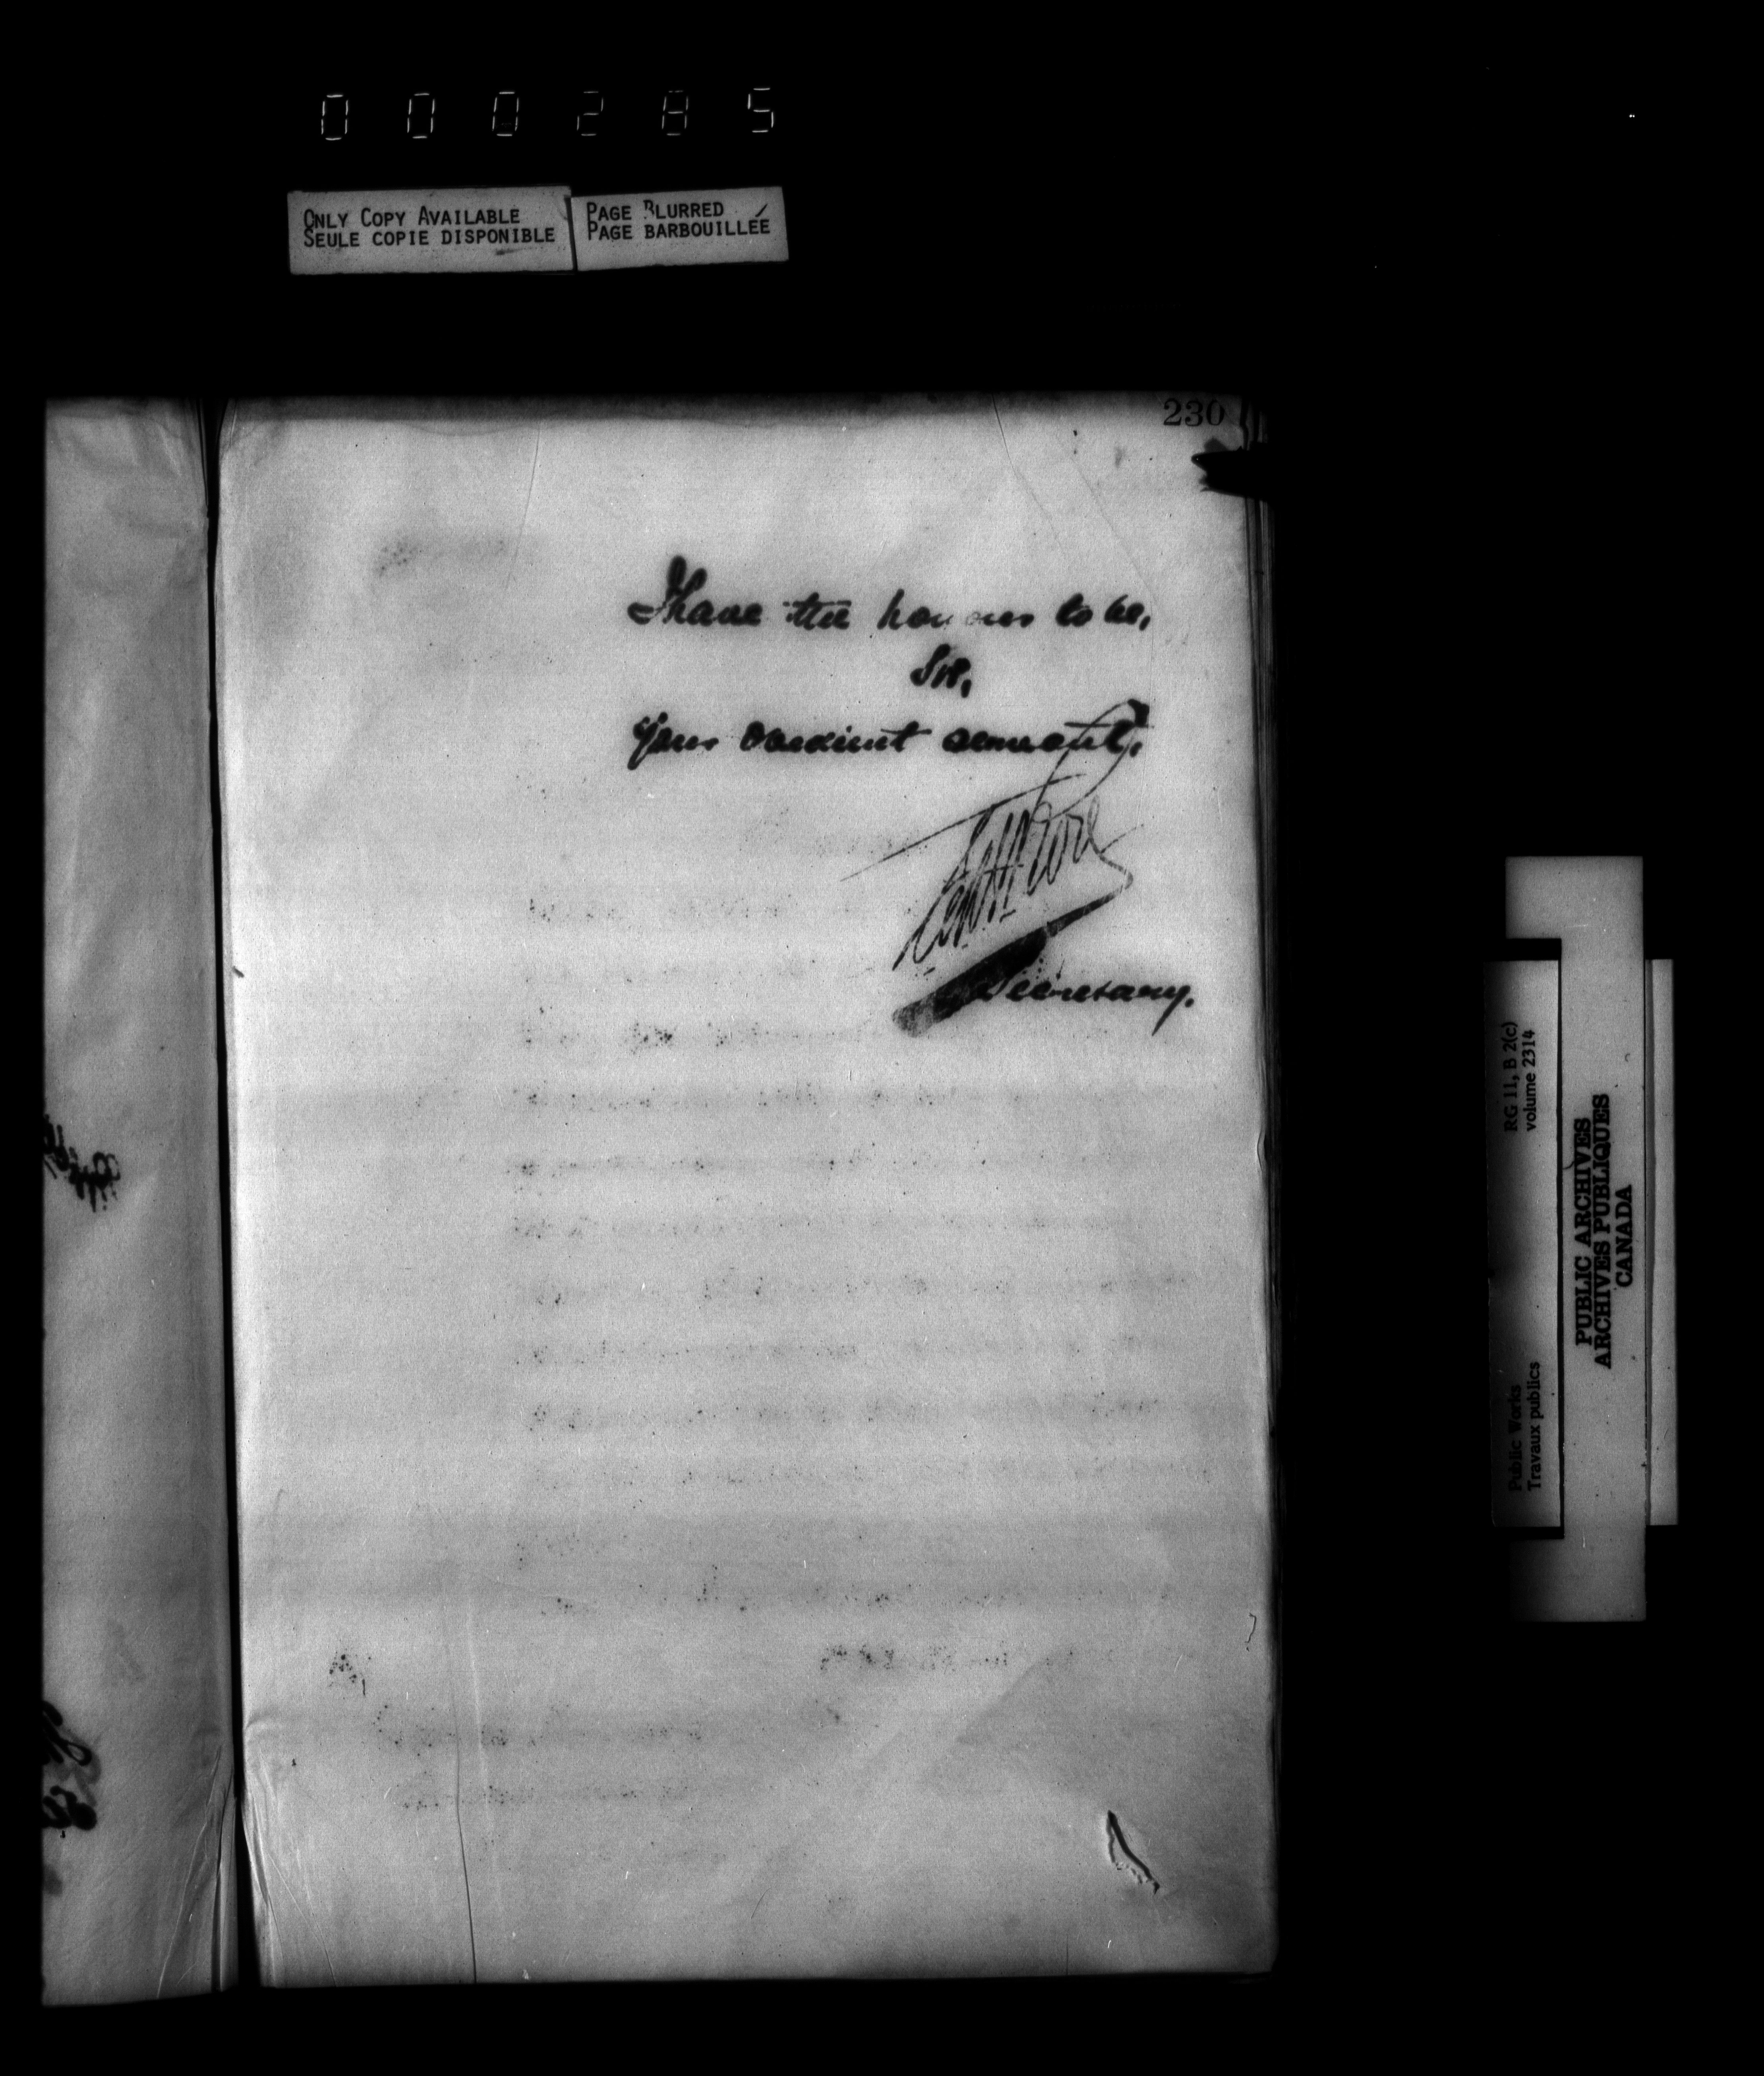 000285
ONLY COPY AVAILABLE
SEULE COPIE DISPONIBLE
PAGE BLURRED
PAGE BARBOUILLÉE
230
I have the honour to be,
Sir,
Your obedient servant,
Secretary.
RG 11, B 2(c)
volume 2314
Public Works
Travaux publics
PUBLIC ARCHIVES
ARCHIVES PUBLIQUES
CANADA